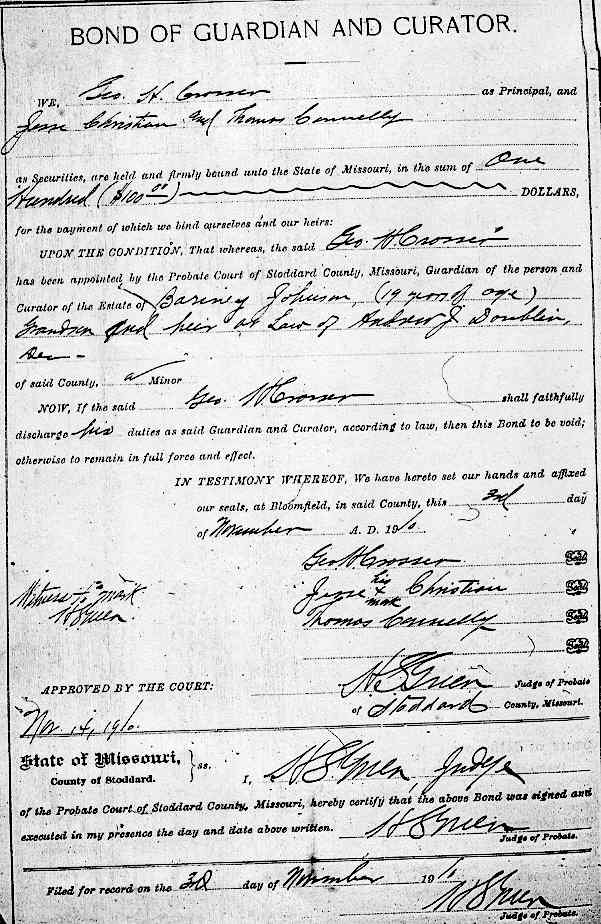 BOND OF GUARDIAN AND CURATOR.
WE, Geo. H. Crosser as Principal, and
Jesse Christian and Thomas Connelly
as Securities, are held and firmly bound unto the State of Missouri, in the sum of One
Hundred ($100.00) DOLLARS,
for the payment of which we bind ourselves and our heirs:
UPON THE CONDITION, That whereas, the said Geo. H Crosser
has been appointed by the Probate Court of Stoddard County, Missouri, Guardian of the person and
Curator of the Estate of Johnson, (19 years of age)
Grandson and heir at Law of Andrew J.
Dec -
of said County, a Minor
NOW, If the said Geo. H Crosser shall faithfully
discharge his duties as said Guardian and Curator, according to law, then this Bond to be void;
otherwise to remain in full force and effect.
IN TESTIMONY WHEREOF, We have hereto set our hands and affixed
our seals, at Bloomfield, in said County, this 3rd day
of November A. D. 1910
Geo H Crosser Seal
Jesse his x mark Christian Seal
Witness to mark
Thomas Connelly Seal
Seal
APPROVED BY THE COURT: Judge of Probate
of Stoddard County, Missouri.
Nov. 14, 1910.
State of Missouri,
County of Stoddard. } ss. I, Judge
of the Probate Court of Stoddard County, Missouri, hereby certify that the above Bond was signed and
executed in my presence the day and date above written.
Judge of Probate.
Filed for record on the 3rd day of November 1910
Judge of Probate.